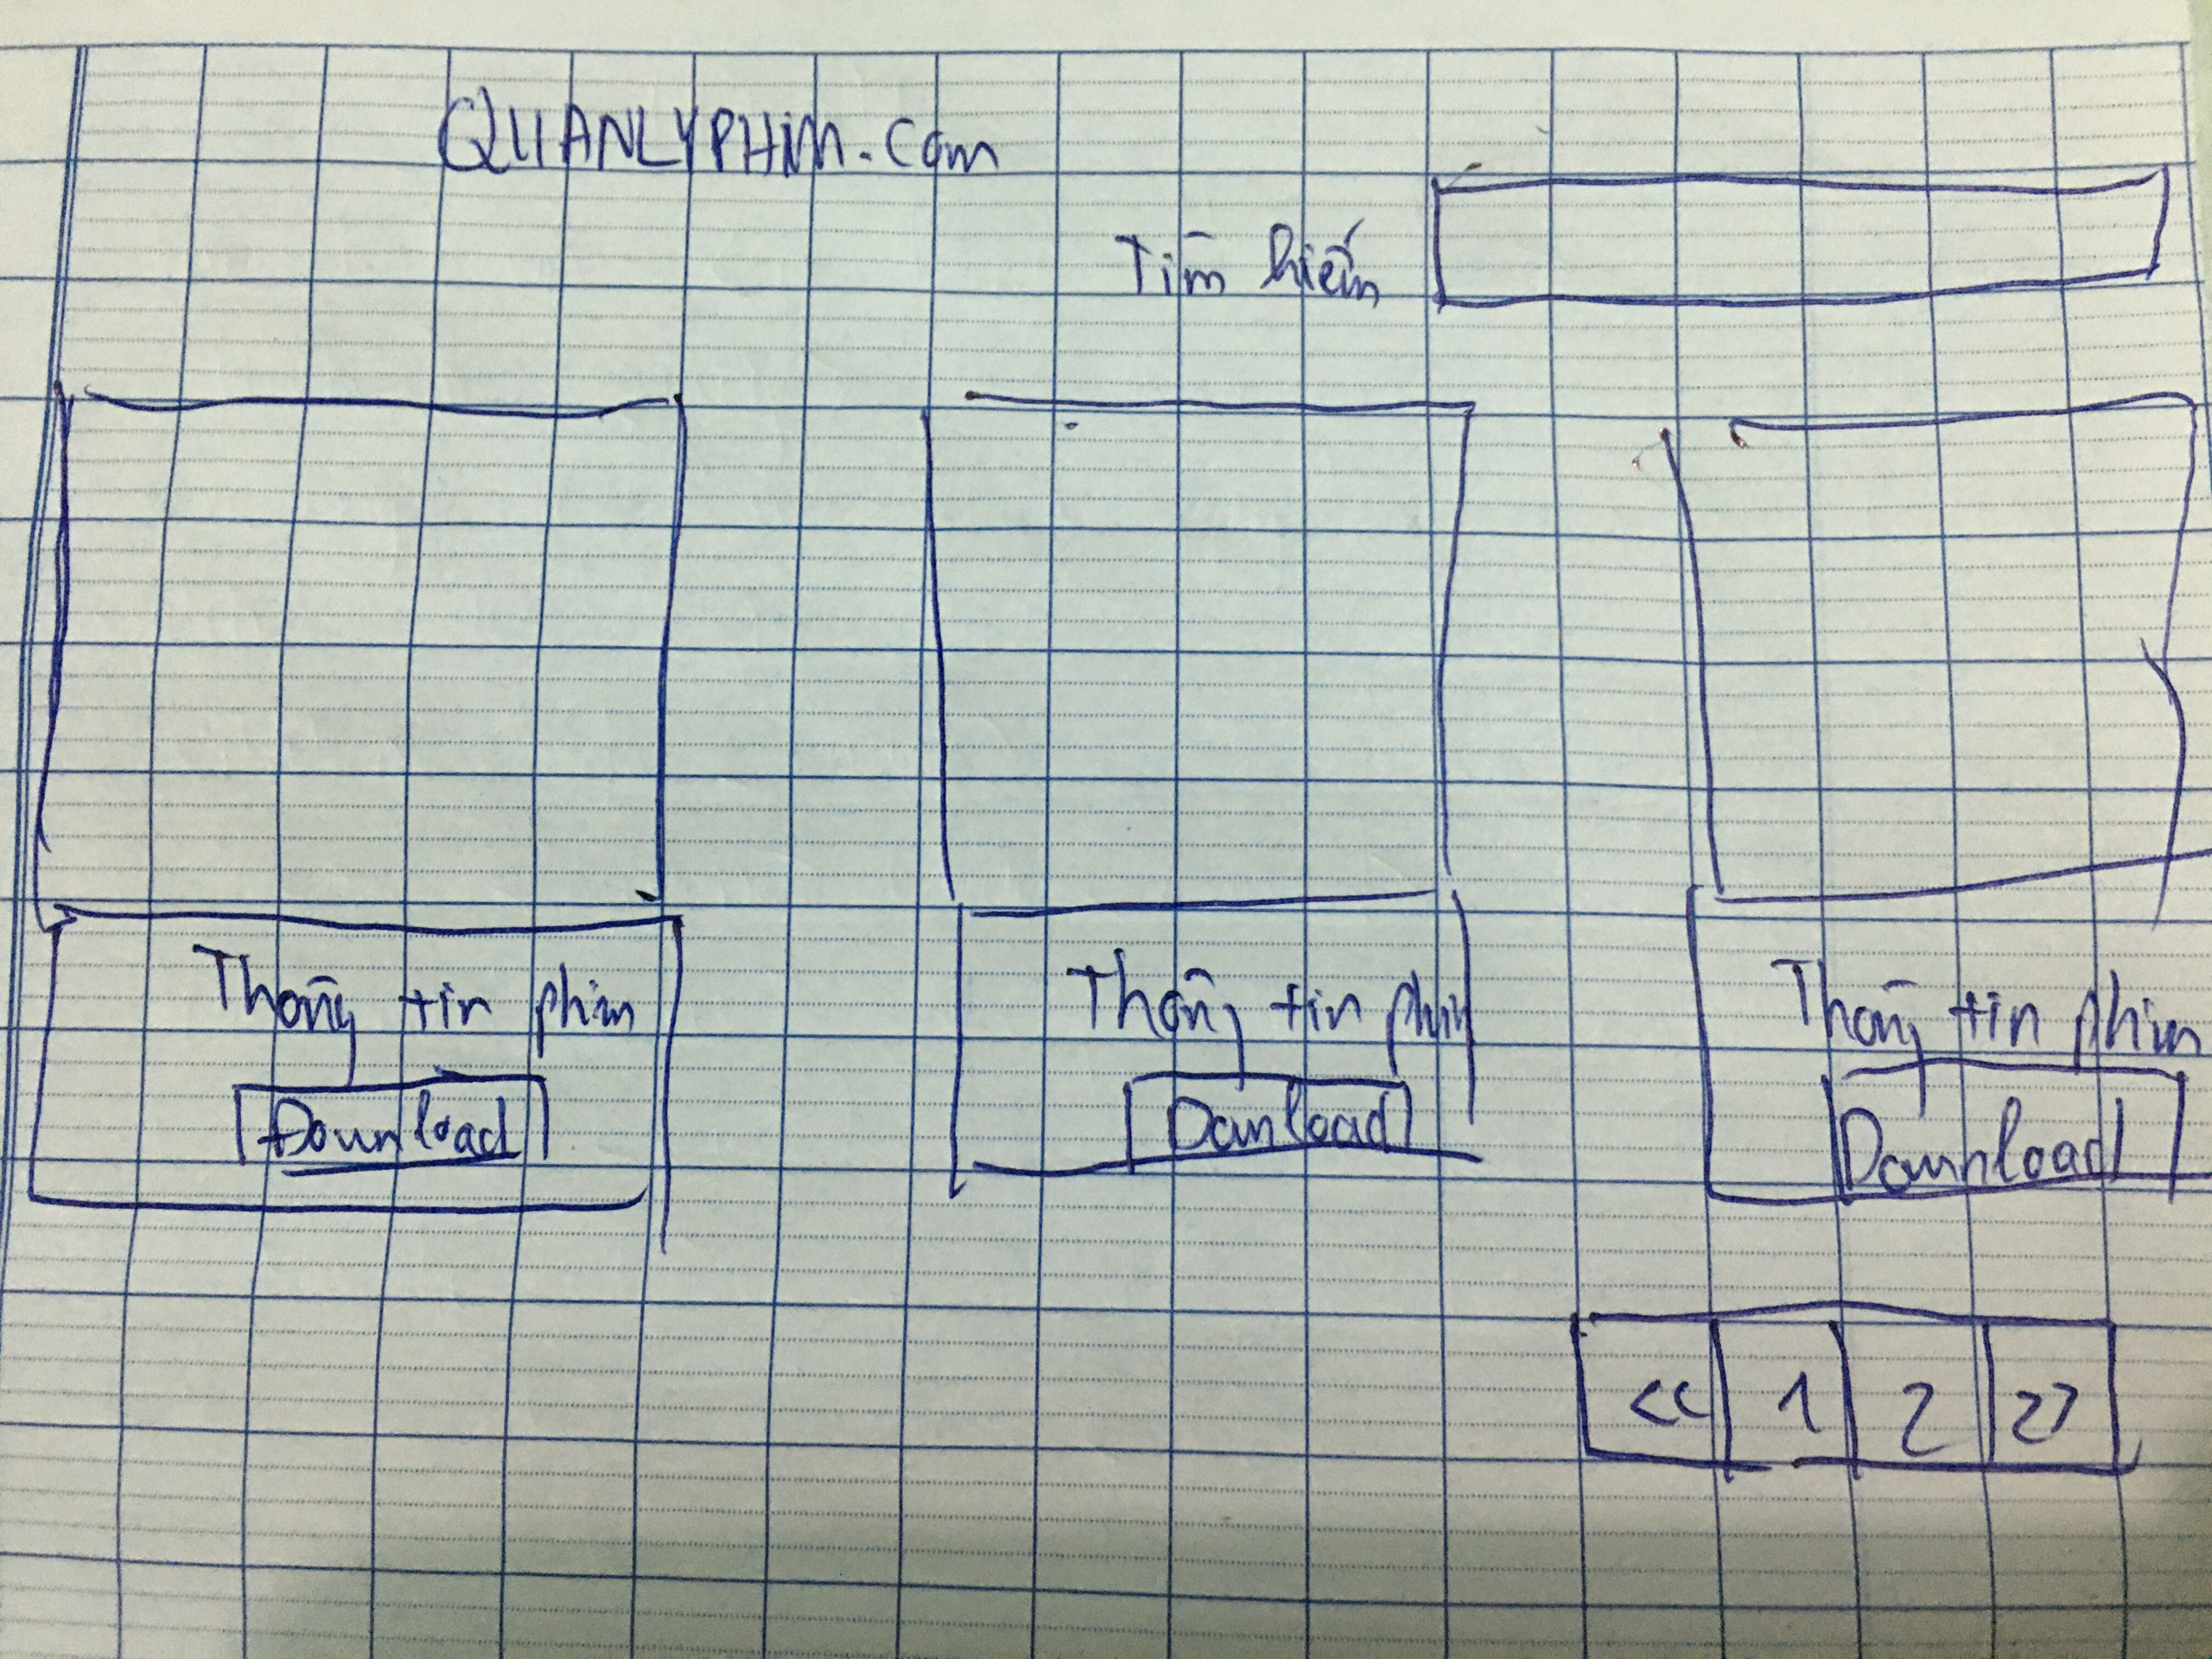 QUANLYPHIM.com
Tìm kiếm
Thông tin phim
Download
Thông tin phim
Download
Thông tin phim
Download
<< 1 2 >>